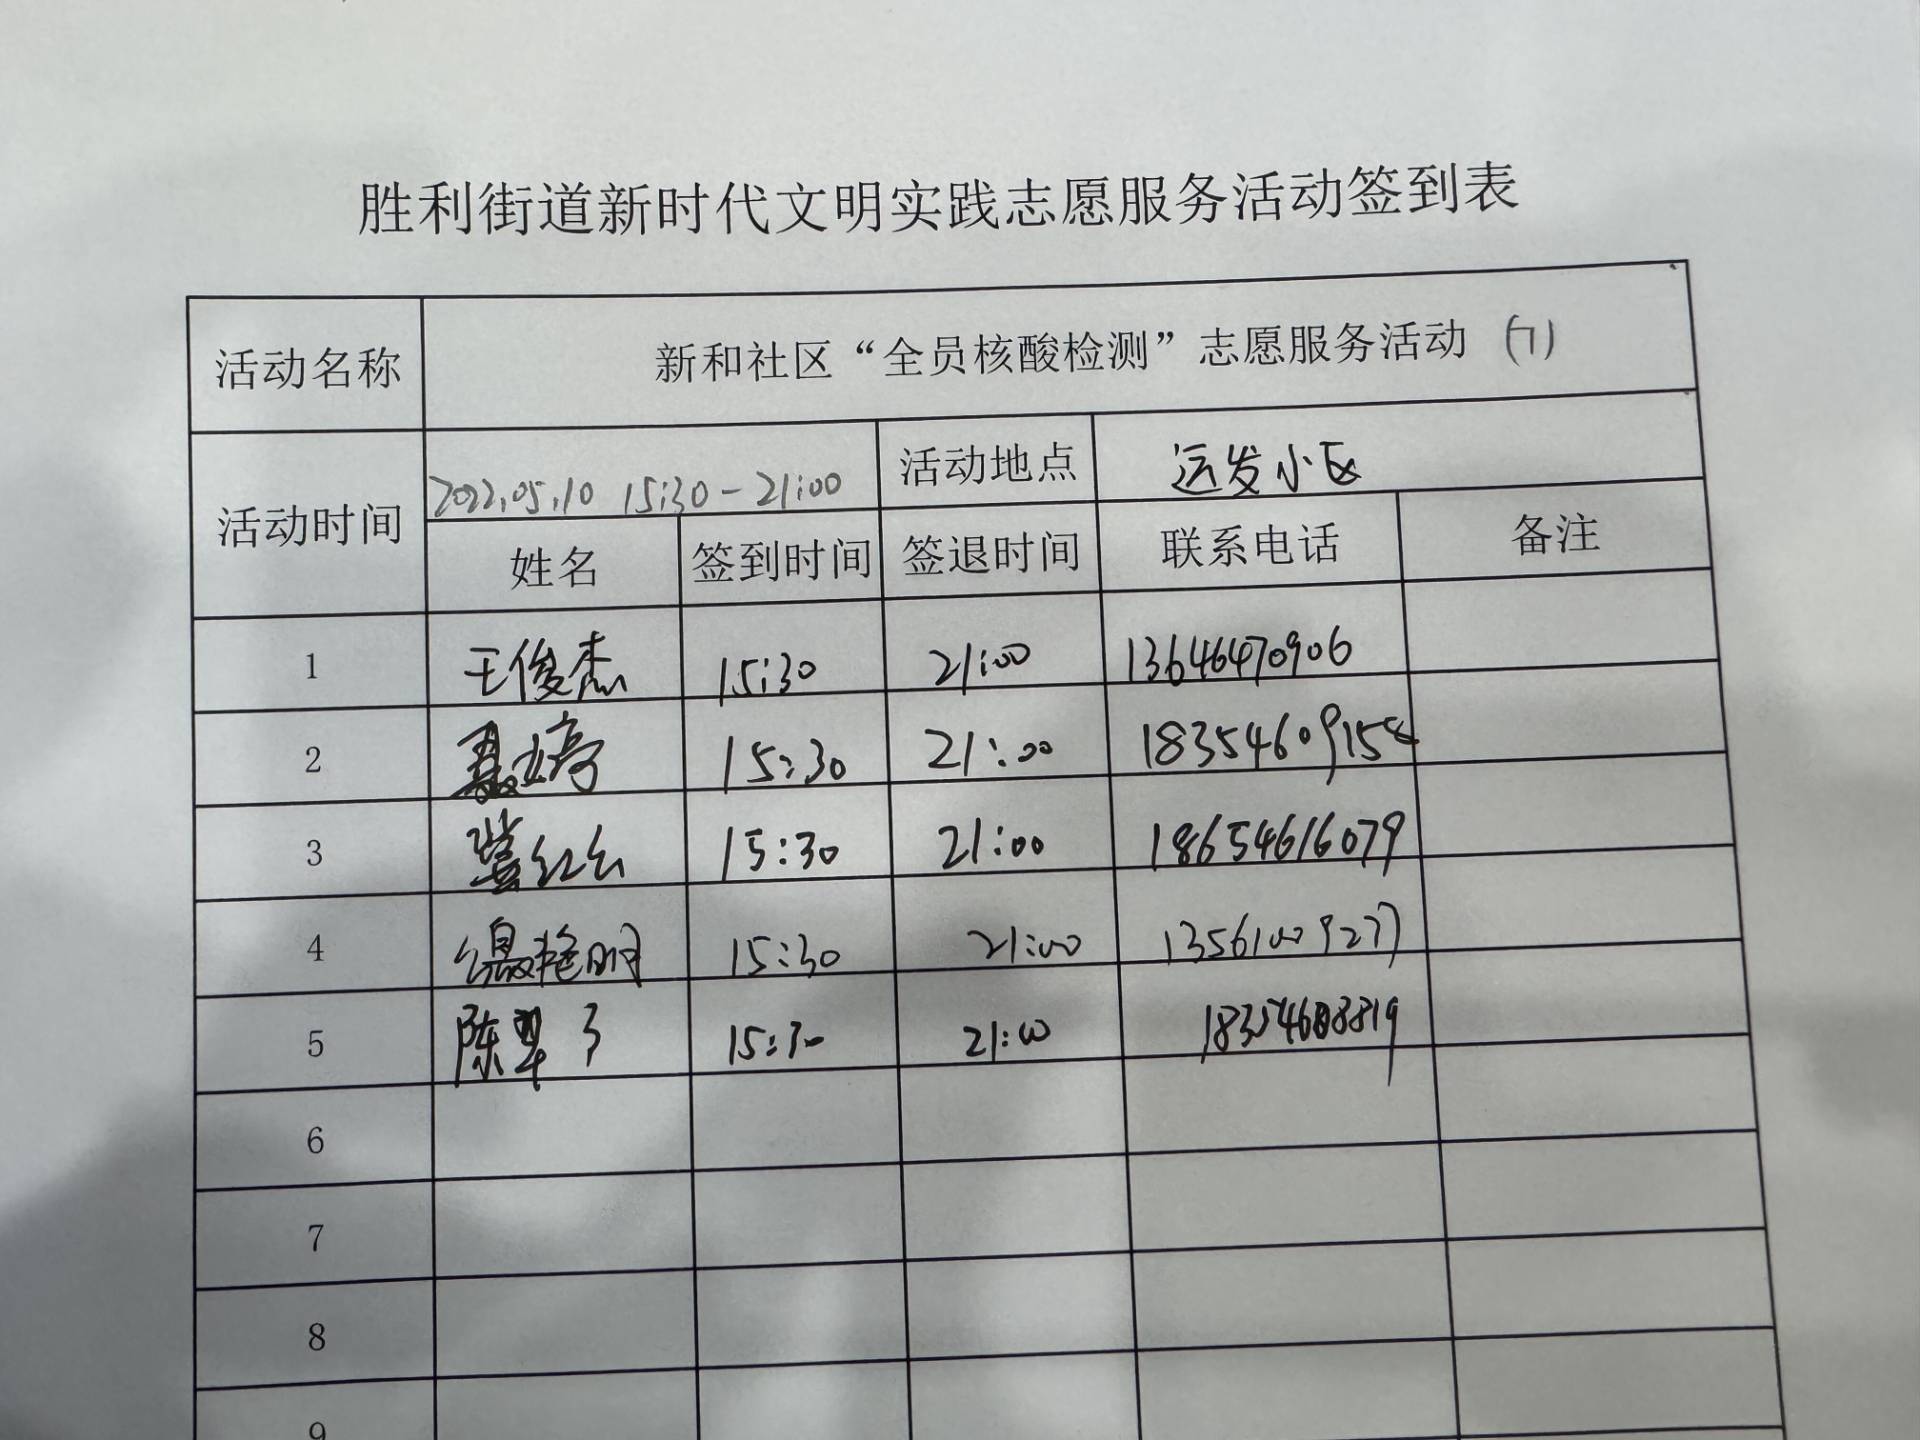 胜利街道新时代文明实践志愿服务活动签到表
活动名称 新和社区“全员核酸检测”志愿服务活动 (7)
活动时间 2022.05.10 15:30-21:00 活动地点 运发小区
姓名 签到时间 签退时间 联系电话 备注
1 王俊杰 15:30 21:00 13646470906
2 聂婷 15:30 21:00 18354609158
3 红 15:30 21:00 18654616079
4 艳明 15:30 21:00 13561009277
5 陈翠 15:30 21:00
6
7
8
9